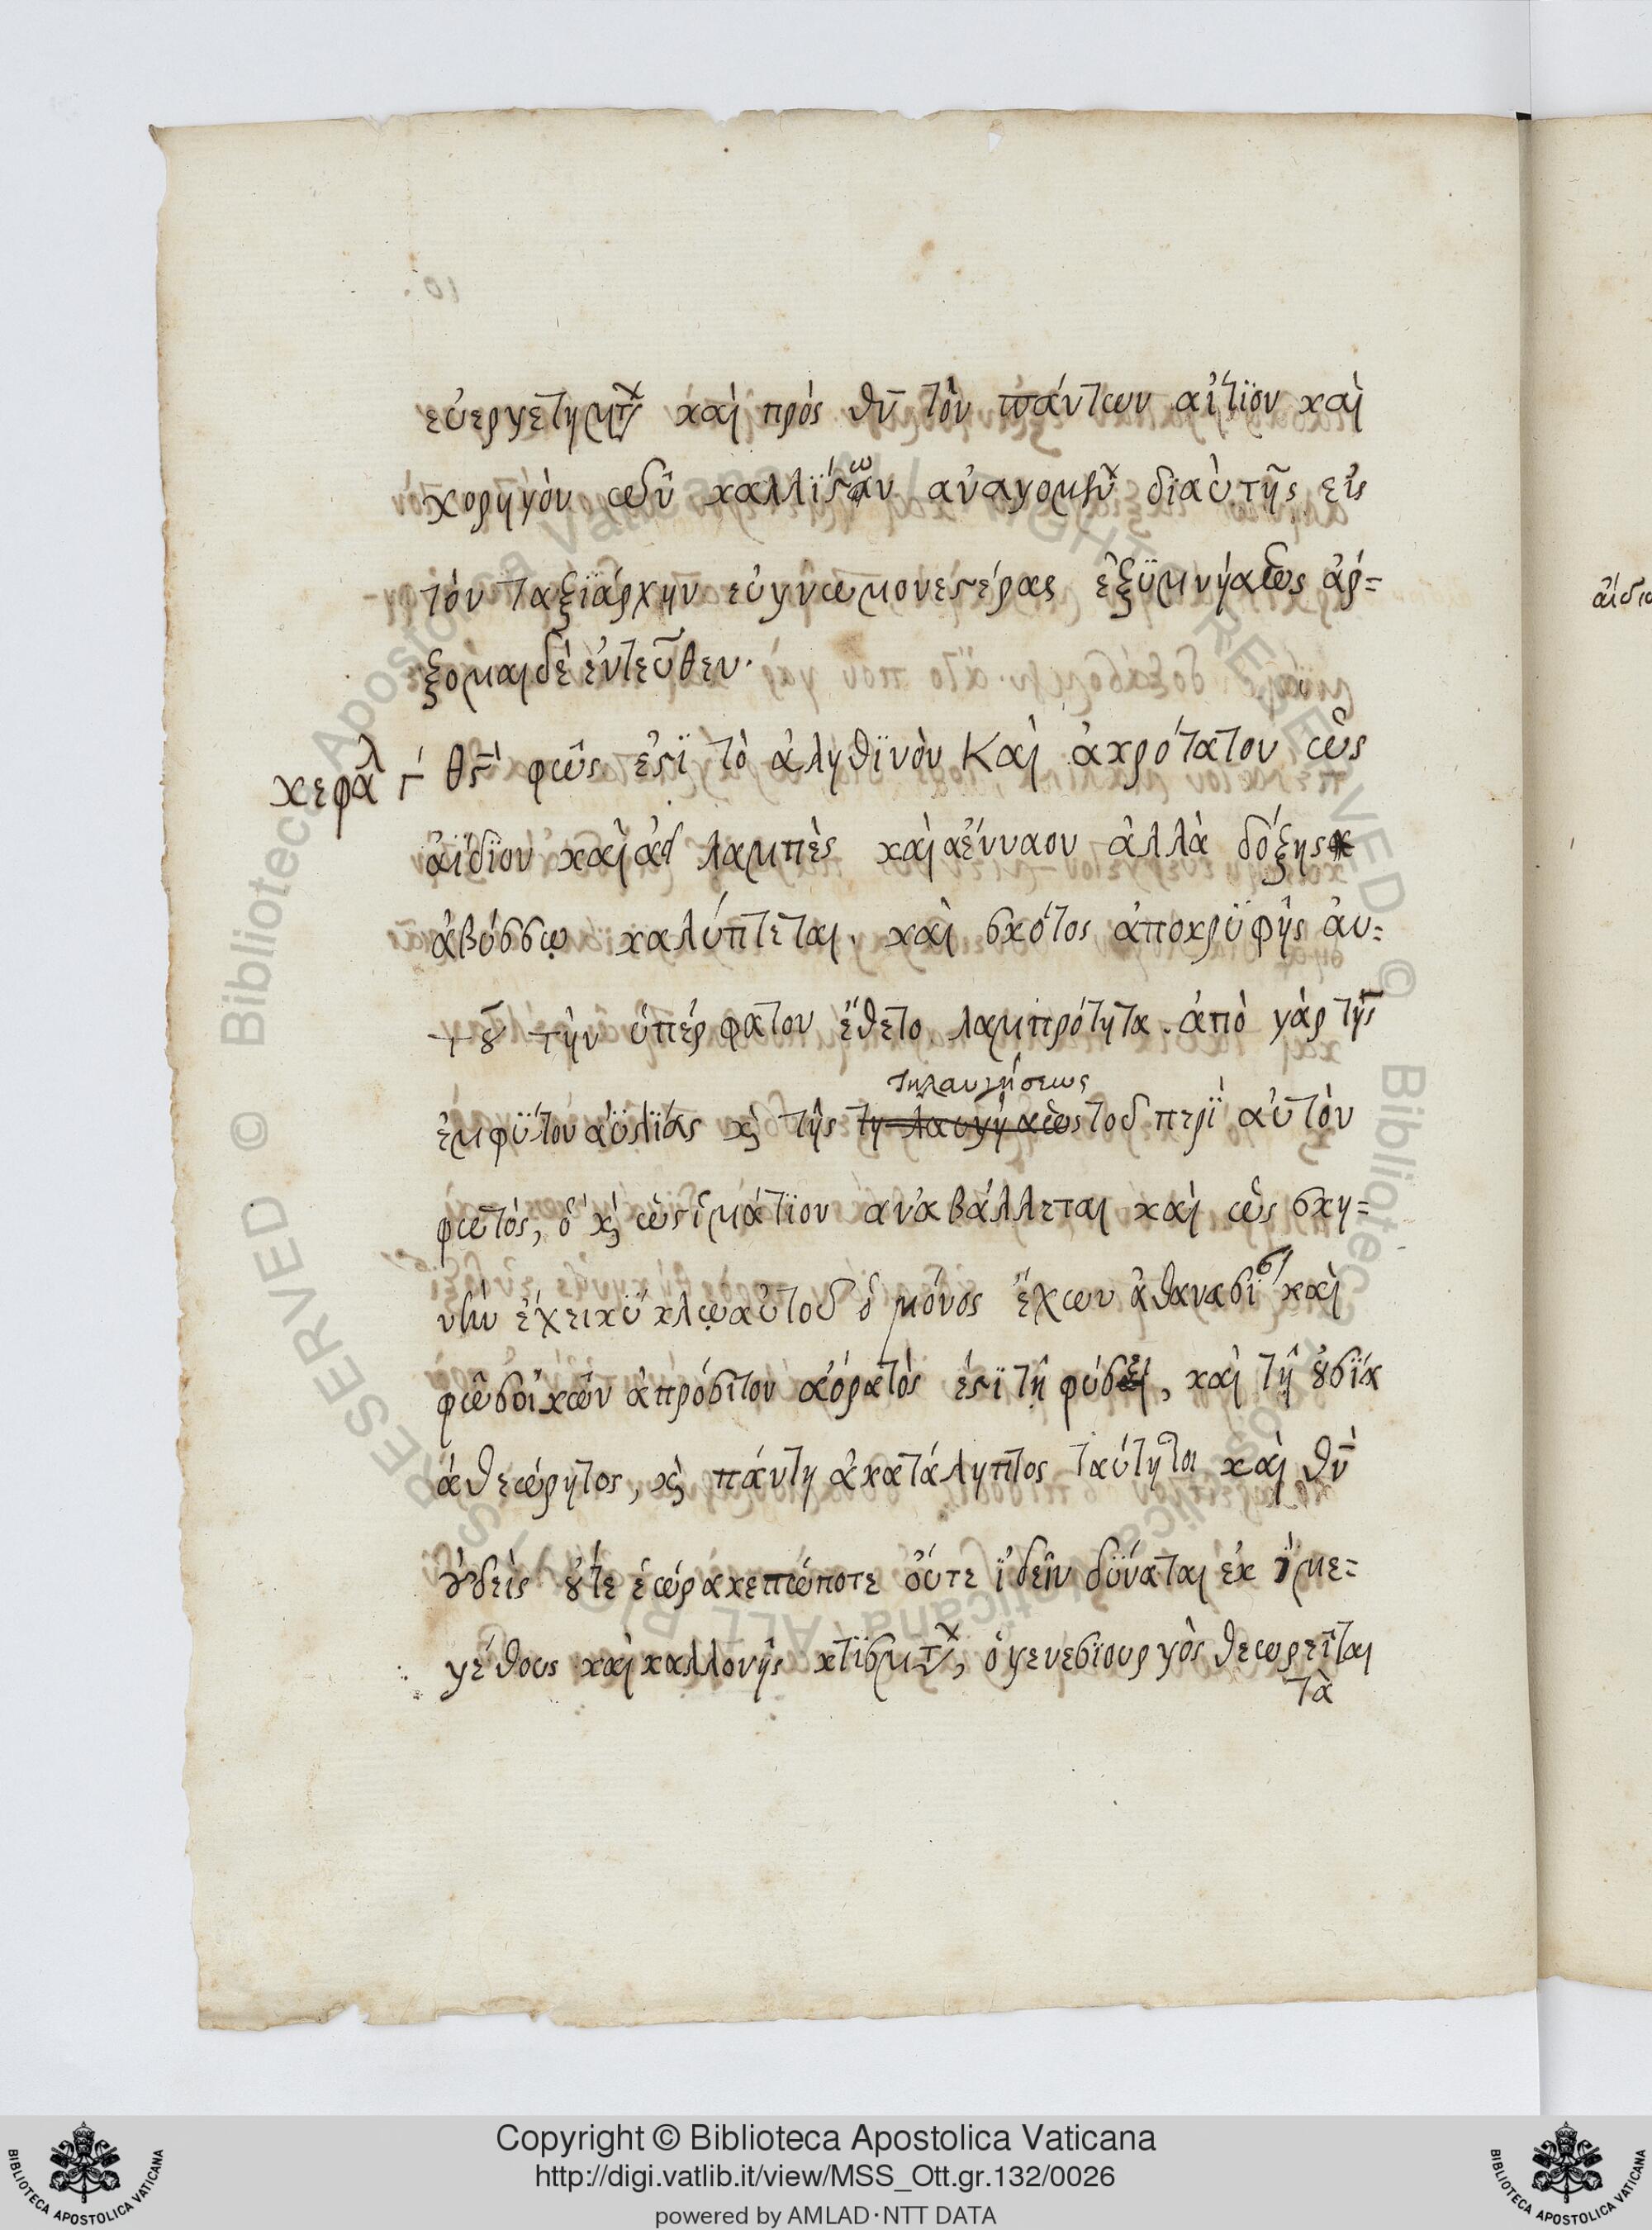 εὐεργετημ̅τ χαὶ πρός θν̅ τὸν πάντων αἴτϊον καὶ
χορηγὸν
τὸν ταξϊάρχην εὐγνωμονεστέρας ἐξϋμνήσεως ἄρ=
ξομαι δὲ ἐντεῦθεν·
κεφαλ Γ´ θς̅ φῶς ἐστϊ τὸ ἀληθϊνὸν Καὶ ἀκρότατον ὡς
ἀΐδϊον καὶ ἀεὶ λαμπὲς καὶ ἀένναον ἀλλὰ δόξης
ἀβύσσῳ καλύπτεται. καὶ σκότος ἀποκρϋφῆς ἀυ=
τοῦ τὴν ὑπέρφατον ἔθετο λαμπρότητα. ἀπὸ γὰρ τῆς
τηλαυγήσεως
ἐμφϋτου ἀϋλϊάς κ τῆς τηλαυγήσεως τοῦ περῒ αὐτὸν
φωτὸς, ὁ κ ὡς ἱμάτϊον ἀναβάλλεται καὶ ὡς σκη=
νὴν ἔχει κϋκλῳ αὐτοῦ ὁ μόνος ἔχων ἀθανασί καὶ
φῶς οἰκῶν ἀπρόσιτον ἀόρατὸς ἐστϊ τῇ φύσει, καὶ τῇ οὐσϊα
ἀθεώρητος, κ πάντη ἀκατάληπτος ταύτῃ τοι καὶ θν̅
οὐδεὶς οὔτε ἑώρακε πώποτε οὔτε ϊδεῖν δϋναται ἐκ μ̀ε=
γέθους καὶ καλλονῆς κτϊσμτ, ὁ γενεσϊουργὸς θεωρεῖται
τὰ
ἀίδιο
Copyright © Biblioteca Apostolica Vaticana
http://digi.vatlib.it/view/MSS_Ott.gr.132/0026
powered by AMLAD·NTT DATA
BIBLIOTECA APOSTOLICA VATICANA
BIBLIOTECA APOSTOLICA VATICANA